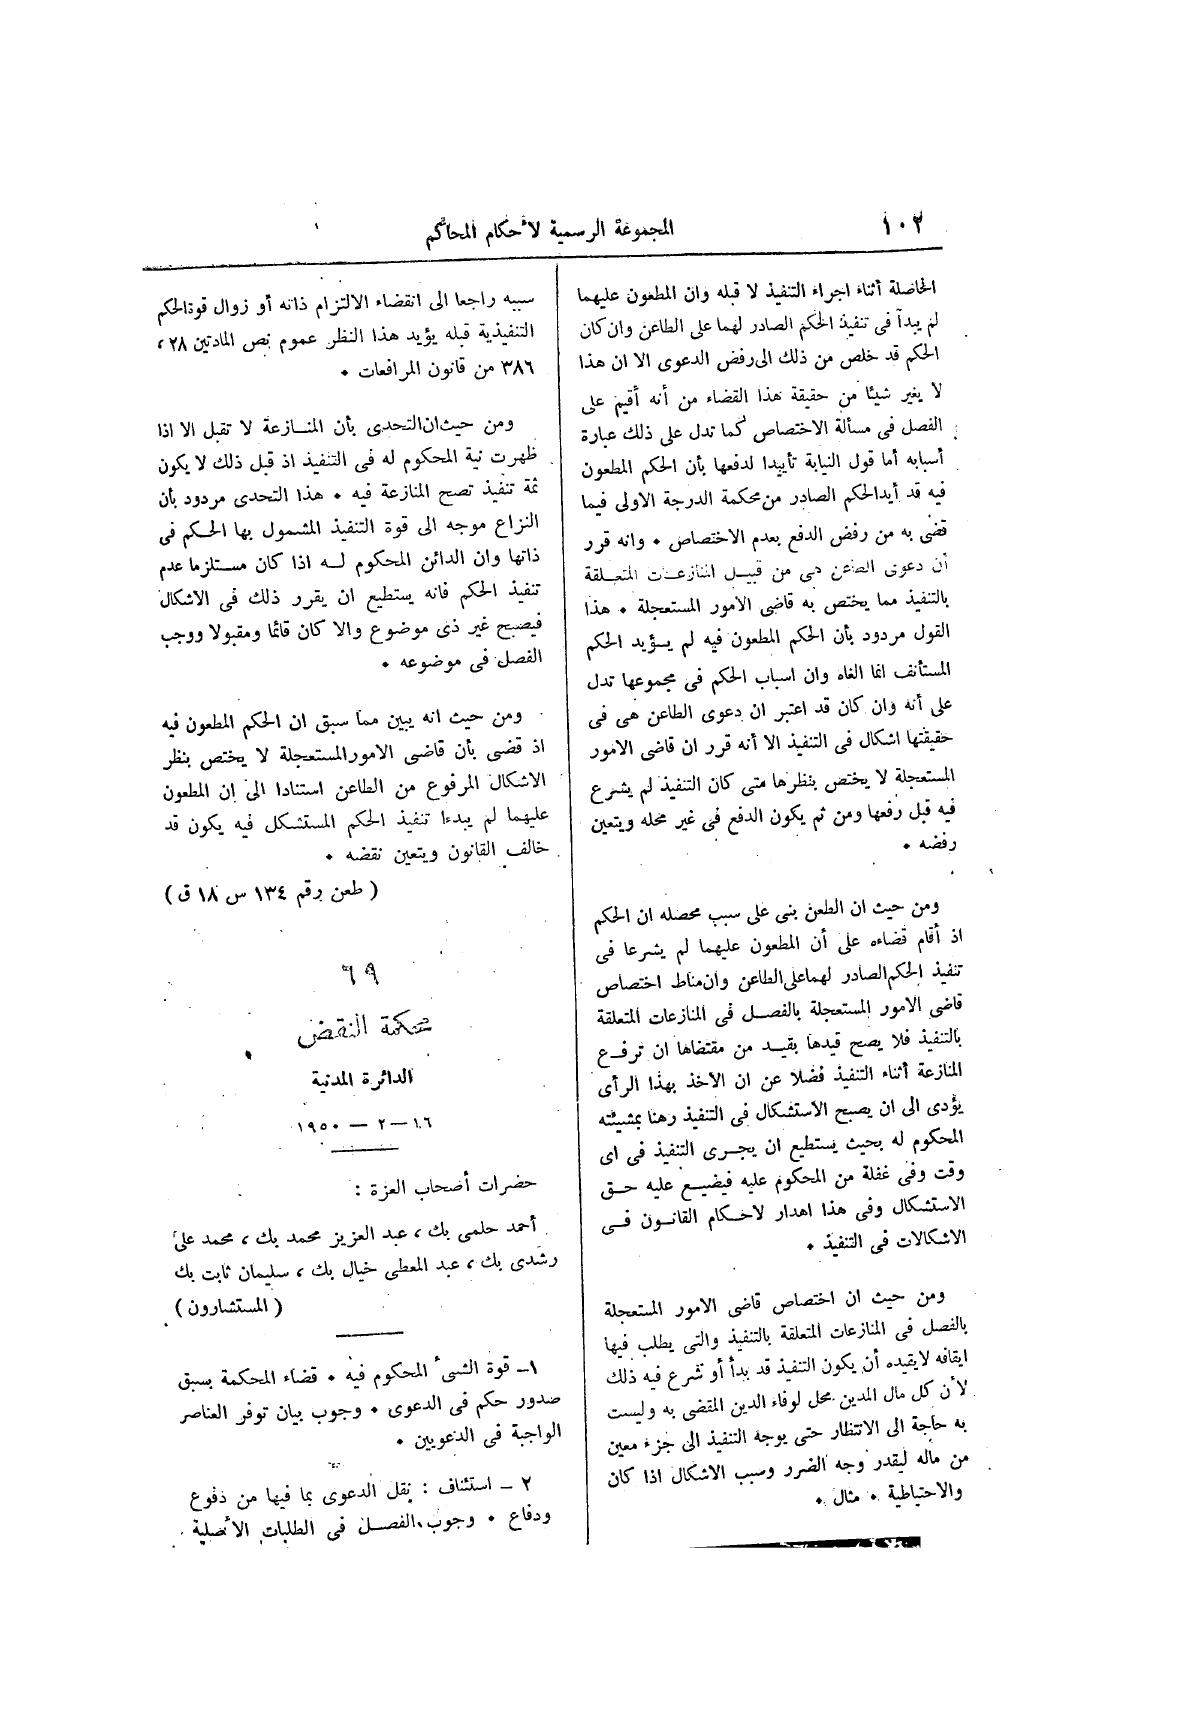 ١٠٢
المجموعة الرسمية لأحكام المحاكم
الحاصلة أثناء اجراء التنفيذ لا قبله وان المطعون عليهما
لم يبدآ فى تنفيذ الحكم الصادر لهما على الطاعن وان كان
الحكم قد خلص من ذلك الى رفض الدعوى الا ان هذا
لا يغير شيئا من حقيقة هذا القضاء من أنه أقيم على
الفصل فى مسألة الاختصاص كما تدل على ذلك عبارة
أسبابه أما قول النيابة تأييدا لدفعها بأن الحكم المطعون
فيه قد أيد الحكم الصادر من محكمة الدرجة الاولى فيما
قضى به من رفض الدفع بعدم الاختصاص ٠ وانه قرر
أن دعوى الطاعن هى من قبيل المنازعات المتعلقة
بالتنفيذ مما يختص به قاضى الامور المستعجلة ٠ هذا
القول مردود بأن الحكم المطعون فيه لم يؤيد الحكم
المستأنف انما الغاه وان اسباب الحكم فى مجموعها تدل
على أنه وان كان قد اعتبر ان دعوى الطاعن هى فى
حقيقتها اشكال فى التنفيذ الا أنه قرر ان قاضى الامور
المستعجلة لا يختص بنظرها متى كان التنفيذ لم يشرع
فيه قبل رفعها ومن ثم يكون الدفع فى غير محله ويتعين
رفضه ٠
ومن حيث ان الطعن بنى على سبب محصله ان الحكم
اذ أقام قضاءه على أن المطعون عليهما لم يشرعا فى
تنفيذ الحكم الصادر لهما على الطاعن وان مناط اختصاص
قاضى الامور المستعجلة بالفصل فى المنازعات المتعلقة
بالتنفيذ فلا يصح قيدها بقيد من مقتضاها ان ترفع
المنازعة أثناء التنفيذ فضلا عن ان الاخذ بهذا الرأى
يؤدى الى ان يصبح الاستشكال فى التنفيذ رهنا بمشيئته
المحكوم له بحيث يستطيع ان يجرى التنفيذ فى اى
وقت وفى غفلة من المحكوم عليه فيضيع عليه حق
الاستشكال وفى هذا اهدار لاحكام القانون فى
الاشكالات فى التنفيذ ٠
ومن حيث ان اختصاص قاضى الامور المستعجلة
بالفصل فى المنازعات المتعلقة بالتنفيذ والتى يطلب فيها
ايقافه لا يقيده أن يكون التنفيذ قد بدأ أو شرع فيه ذلك
لأن كل مال المدين محل لوفاء الدين المقضى به وليست
به حاجة الى الانتظار حتى يوجه التنفيذ الى جزء معين
من ماله ليقدر وجه الضرر وسبب الاشكال اذا كان
والاحتياطية ٠ مثال ٠
سببه راجعا الى انقضاء الالتزام ذاته أو زوال قوة الحكم
التنفيذية قبله يؤيد هذا النظر عموم نص المادتين ٢٨ ،
٣٨٦ من قانون المرافعات ٠
ومن حيث ان التحدى بأن المنازعة لا تقبل الا اذا
ظهرت نية المحكوم له فى التنفيذ اذ قبل ذلك لا يكون
ثمة تنفيذ تصح المنازعة فيه ٠ هذا التحدى مردود بأن
النزاع موجه الى قوة التنفيذ المشمول بها الحكم فى
ذاتها وان الدائن المحكوم له اذا كان مستلزما عدم
تنفيذ الحكم فانه يستطيع ان يقرر ذلك فى الاشكال
فيصبح غير ذى موضوع والا كان قائما ومقبولا ووجب
الفصل فى موضوعه ٠
ومن حيث انه يبين مما سبق ان الحكم المطعون فيه
اذ قضى بأن قاضى الامور المستعجلة لا يختص بنظر
الاشكال المرفوع من الطاعن استنادا الى ان المطعون
عليهما لم يبدءا تنفيذ الحكم المستشكل فيه يكون قد
خالف القانون ويتعين نقضه ٠
( طعن رقم ١٣٤ س ١٨ ق )
٦٩
محكمة النقض
الدائرة المدنية
١٦ — ٢ — ١٩٥٠
حضرات أصحاب العزة :
أحمد حلمى بك ، عبد العزيز محمد بك ، محمد على
رشدى بك ، عبد المعطى خيال بك ، سليمان ثابت بك
( المستشارون )
١ــ قوة الشىء المحكوم فيه ٠ قضاء المحكمة بسبق
صدور حكم فى الدعوى ٠ وجوب بيان توفر العناصر
الواجبة فى الدعويين ٠
٢ ــ استئناف : نقل الدعوى بما فيها من دفوع
ودفاع ٠ وجوب الفصل فى الطلبات الأصلية